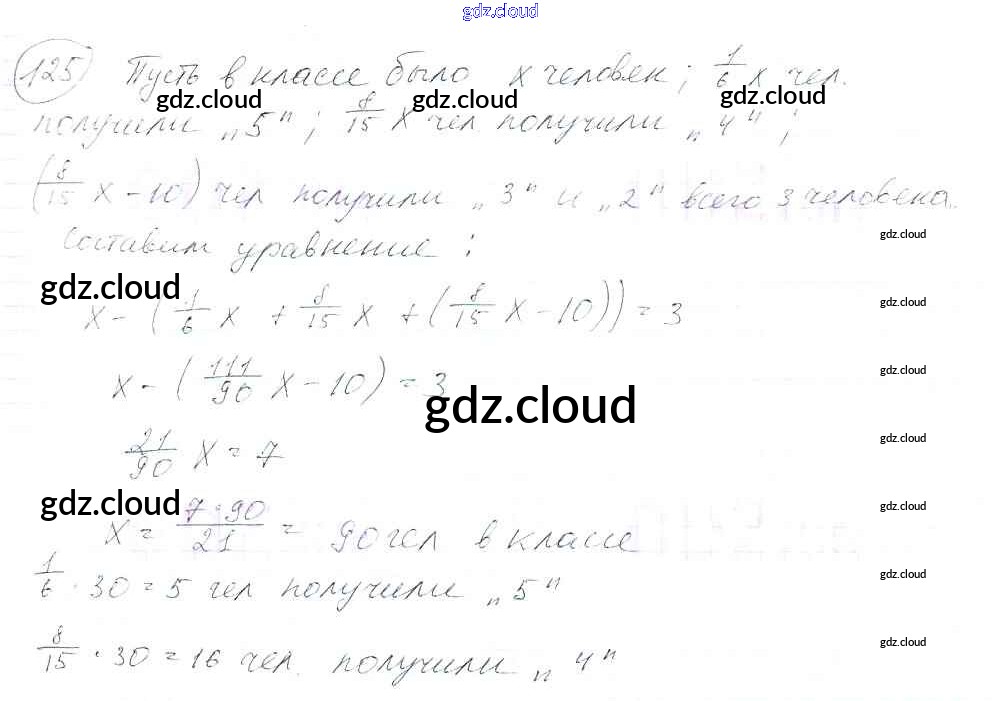 gdz.cloud
125) Пусть в классе было x человек; 1/6 x чел.
gdz.cloud gdz.cloud gdz.cloud
получили „5"; 8/15 x чел получили „4";
(8/15 x - 10) чел получили „3" и „2" всего 3 человека.
gdz.cloud
Составим уравнение:
gdz.cloud
gdz.cloud
x - (1/6 x + 8/15 x + (8/15 x - 10)) = 3
gdz.cloud
x - (111/90 x - 10) = 3
gdz.cloud
gdz.cloud
21/90 x = 7
gdz.cloud
gdz.cloud
x = 7·90/21 = 90 чел в классе
gdz.cloud
1/6 · 30 = 5 чел получили „5"
gdz.cloud
8/15 · 30 = 16 чел. получили „4"